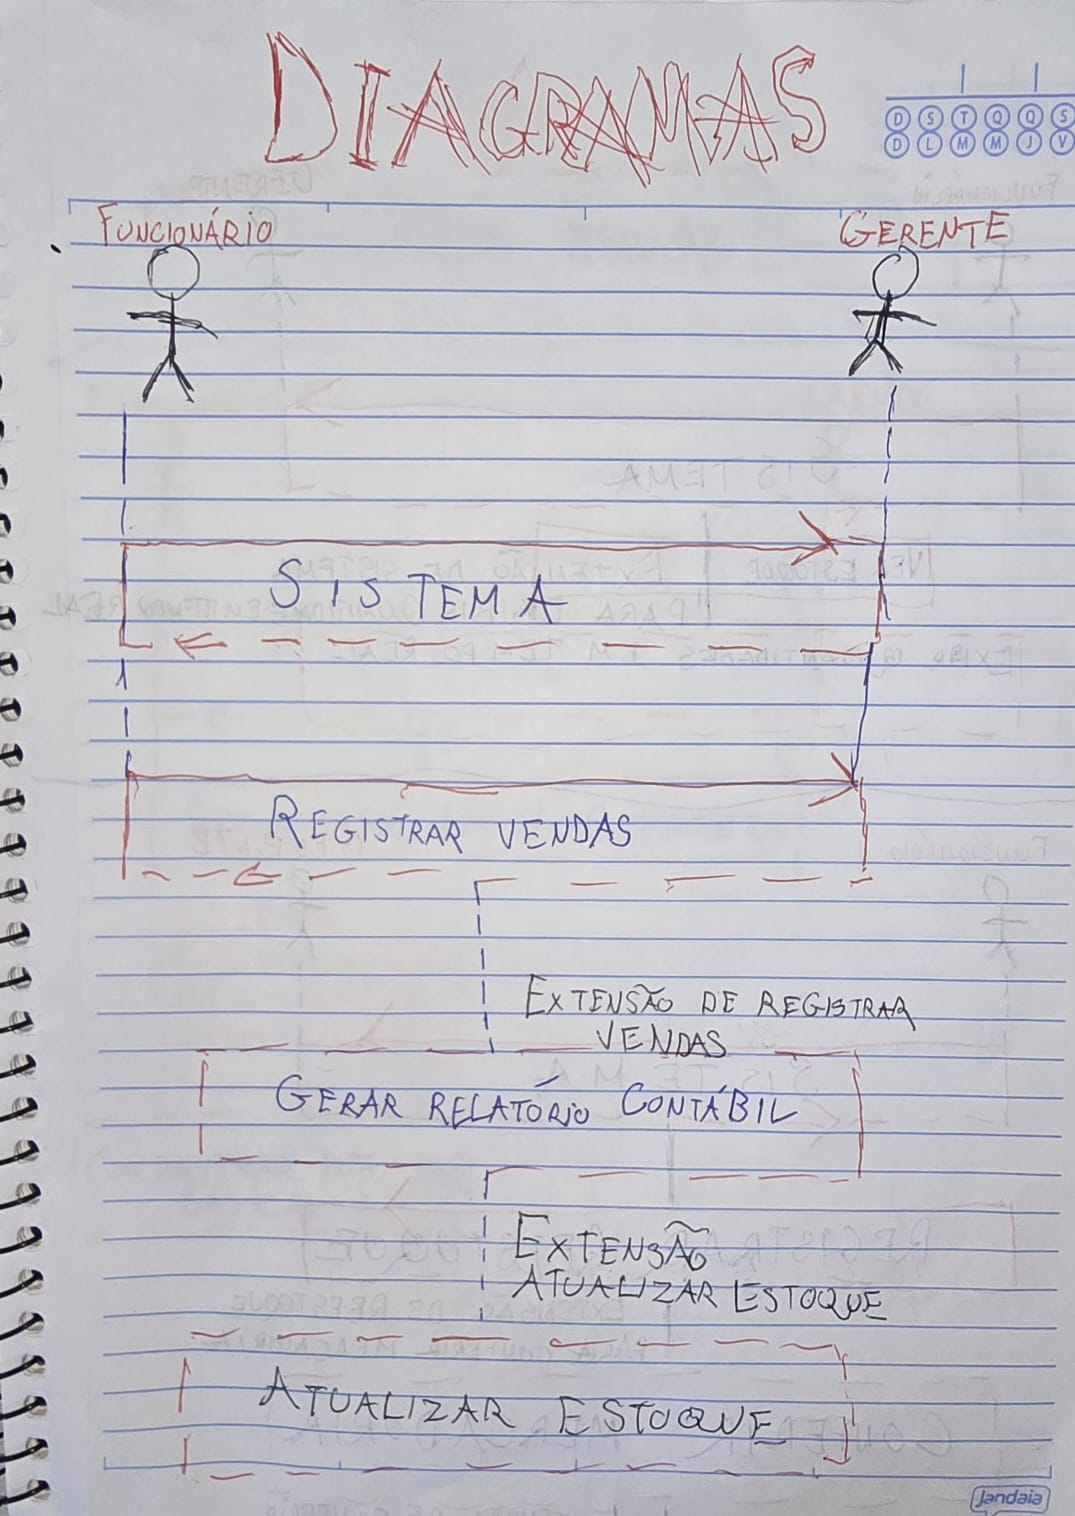 DIAGRAMAS
D S T Q Q S
D L M M J V
FUNCIONÁRIO
GERENTE
SISTEMA
REGISTRAR VENDAS
EXTENSÃO DE REGISTRAR
VENDAS
GERAR RELATÓRIO CONTÁBIL
EXTENSÃO
ATUALIZAR ESTOQUE
ATUALIZAR ESTOQUE
Jandaia